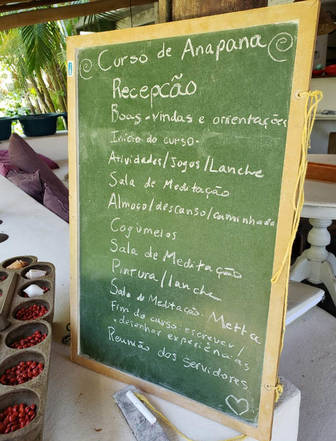 Curso de Anapana
Recepcão
Boas-vindas e orientações
Início do curso-
Atividades/Jogos/Lanche
Sala de Meditação
Almoço/descanso/caminhada
Cogumelos
Sala de Meditação
Pintura/lanche
Sala de Meditação Metta
Fim do curso escrever/
desenhar experiências
Reunião dos servidores